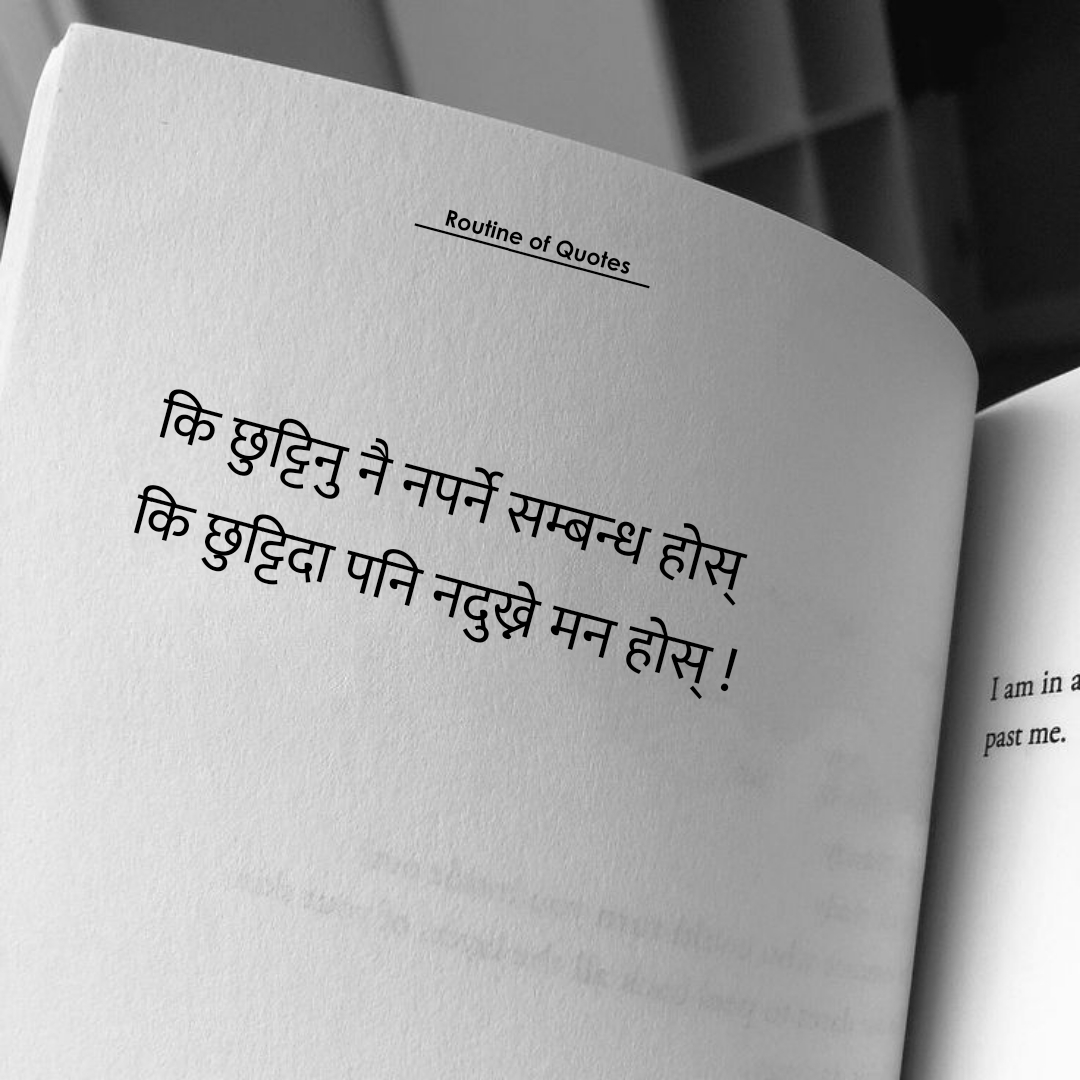 Routine of Quotes
कि छुट्टिनु नै नपर्ने सम्बन्ध होस्
कि छुट्टिदा पनि नदुख्ने मन होस् !
I am in a
past me.